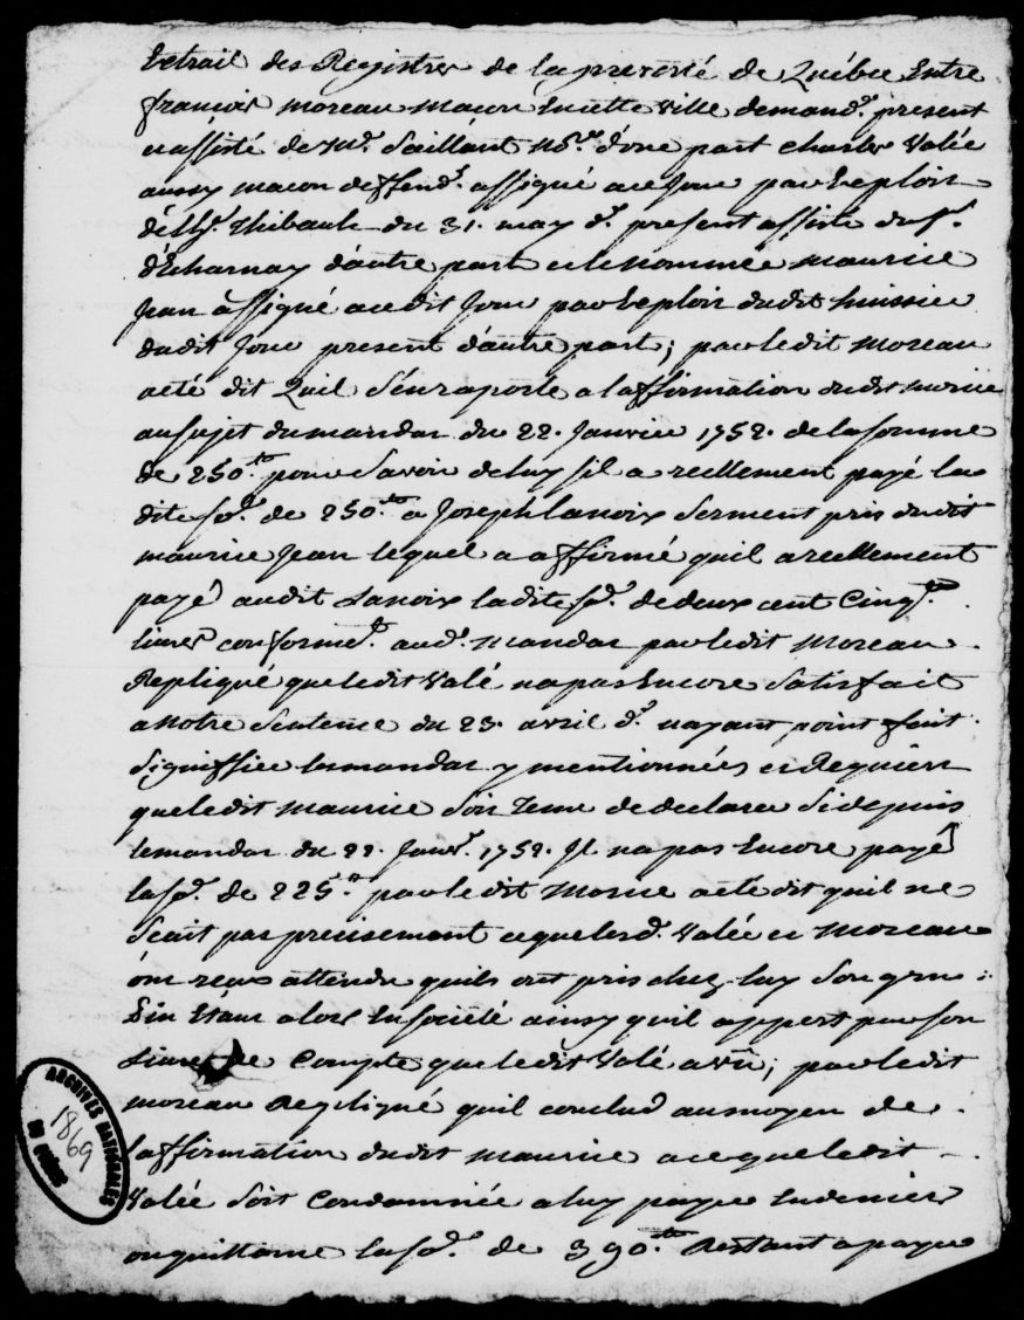 Extrait des Registres de la prevosté de Québec Entre
francois moreau macon En cette Ville demandr. present
et assisté de Me. Saillant Nore. d'une part charles Valée
aussy macon deffendr. assigné a ce Jour par Exploit
de Thibault du 31. may dr. present assisté du Sr.
d'Echarnay d'autre part et le nommée maurice
Jean assigné audit Jour par Exploit dudit huissier
dudit Jour present d'autre part; par ledit Moreau
a eté dit Quil s'en raporte a laffirmation dudit murice
au sujet du mandat du 22. Janvier 1752. de la somme
de 250.tt pour Savoir de luy sil a reellement payé la
dite so.e de 250.tt a Joseph lanoix Serment pris dudit
maurice Jean lequel a affirmé quil a reellement
payé audit Lanoix ladite so.e de deux cent Cinq.te
livres conformet. aud. Mandat par ledit Moreau
Repliqué que ledit Valé na pas Encore Satisfait
a Notre Sentence du 23. avril dr. nayant point fait
Signiffier les mandat y mentionnées et Requiert
que ledit maurice Soit Tenu de declarer Si depuis
le mandat du 22. Janvr. 1752. Il na pas Encore payé
la so.e de 225.tt par ledit Morice a eté dit quil ne
Scait pas precisement ce que lesd. Valée et Moreau
ont reçus attendu quils ont pris chez luy Son
Etant alors En Société ainsy quil appert par son
Livre de Compte que ledit Valé a vû; par ledit
moreau Repliqué quil conclud au moyen de
laffirmation dudit maurice a ce que ledit
Valée Soit Condamnée a luy payer En deniers
ou quittance la so.e de 390.tt Restant a payer
ARCHIVES NATIONALES
DU QUEBEC
1869